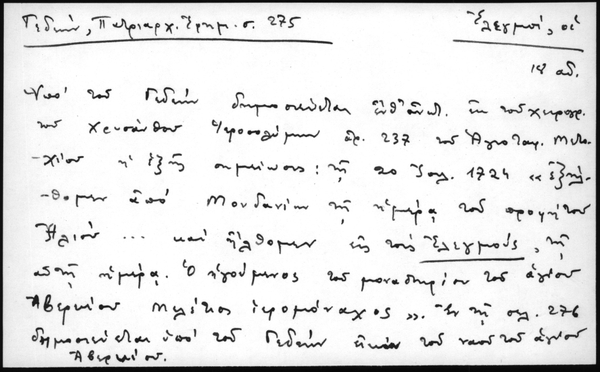 Γεδεών, Πατριαρχ. Ἐφημ. σ. 275
Ἐλεγμοί, οἱ
18 αἰ.
Ὑπό τοῦ Γεδεών δημοσιεύεται ἐκ τοῦ χειρογρ.
τοῦ Χρυσάνθου Ἱεροσολύμων ἀρ. 237 τοῦ Ἁγιοταφ. Μετο-
-χίου ἡ ἑξῆς σημείωσις: τῇ 20 Ἰουλ. 1724 «ἐξήλ-
-θομεν ἀπό Μουδανίων τῇ ἡμέρᾳ τοῦ προφήτου
Ἠλιού ... καί ἤλθομεν εἰς τούς Ἐλεγμούς, τῇ
αὐτῇ ἡμέρᾳ. Ὁ ἡγούμενος τοῦ μοναστηρίου τοῦ ἁγίου
Ἀβερκίου Μελέτιος ἱερομόναχος». Ἐν τῇ σελ. 276
δημοσιεύεται ὑπό τοῦ Γεδεών εἰκών τοῦ ναοῦ τοῦ ἁγίου
Ἀβερκίου.